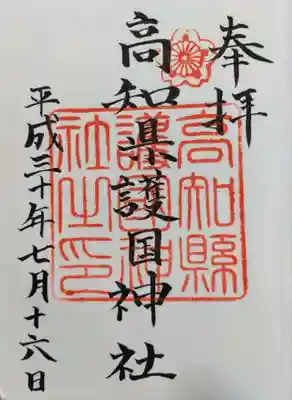 奉拝
高知県護国神社
高知縣
護國神
社之印
平成三十年七月十六日